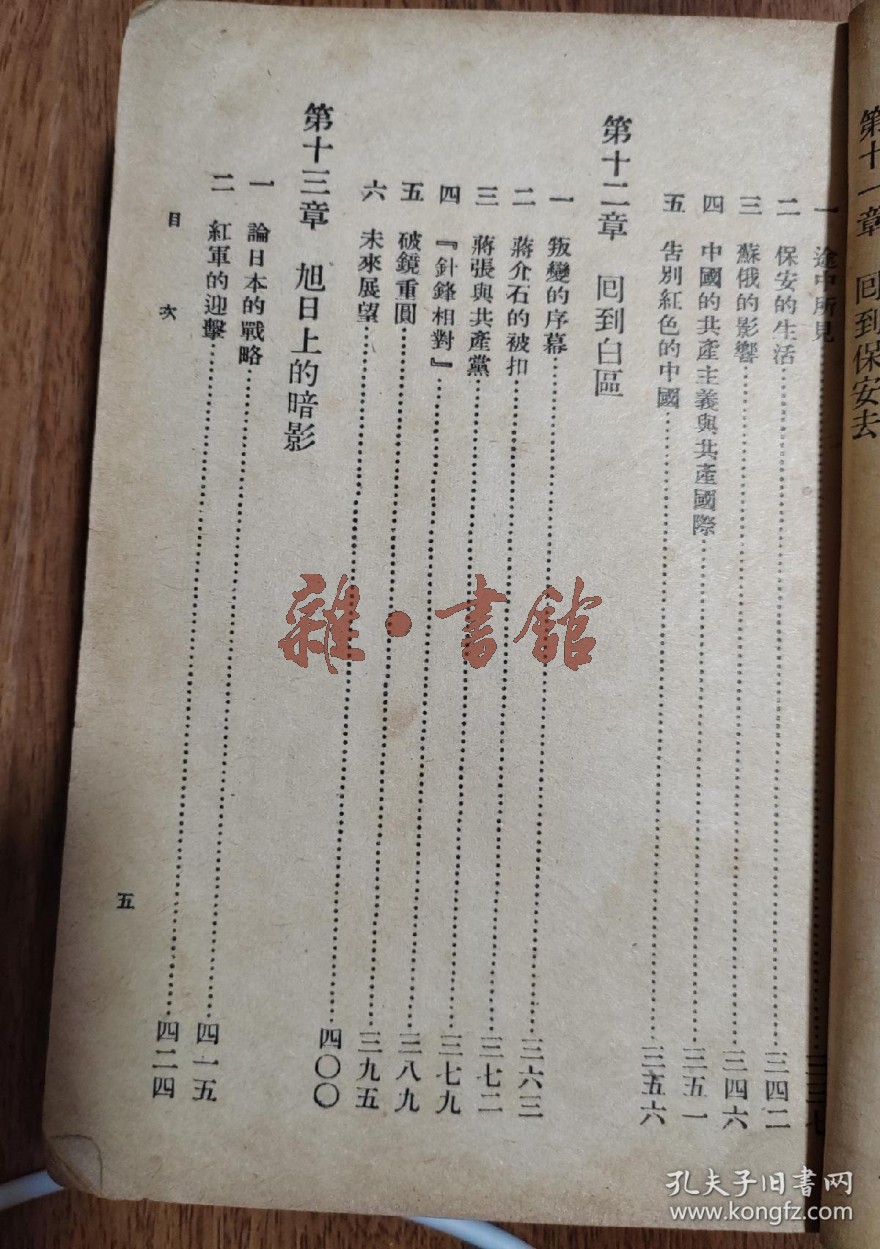 第十一章　囘到保安去
一　途中所見……三三七
二　保安的生活……三四二
三　蘇俄的影響……三四六
四　中國的共產主義與共產國際……三五一
五　告別紅色的中國……三五六
第十二章　囘到白區
一　叛變的序幕……三六三
二　蔣介石的被扣……三七二
三　蔣張與共產黨……三七九
四　『針鋒相對』……三八九
五　破鏡重圓……三九五
六　未來展望……四〇〇
第十三章　旭日上的暗影
一　論日本的戰略……四一五
二　紅軍的迎擊……四二四
目　次
五
雜·書館
孔夫子旧书网
www.kongfz.com